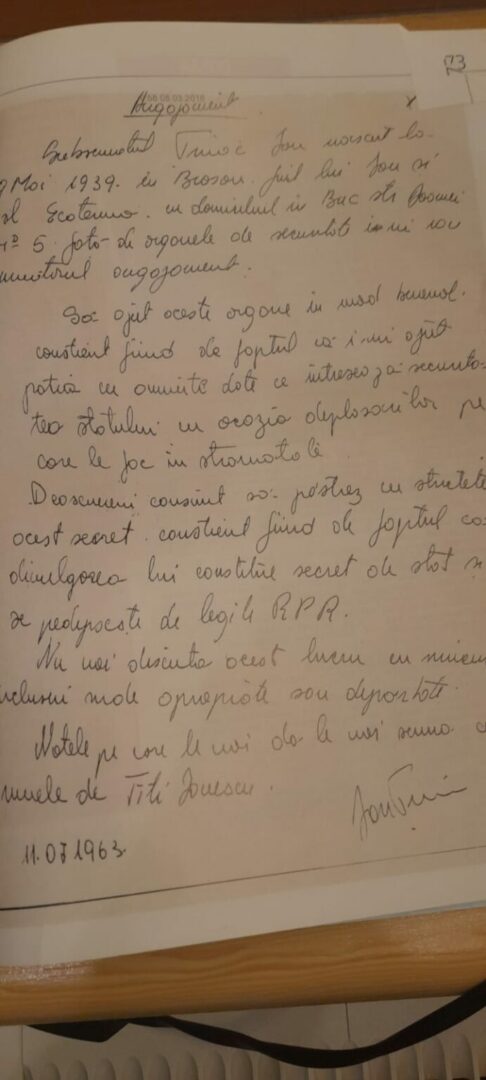 73
Angajament
Subsemnatul Ion născut la
9 Mai 1939. în Brașov. fiul lui Ion și
al Ecaterina. cu domiciliul în Buc str
nº 5. față de organele de securitate îmi iau
următorul angajament.
Să ajut aceste organe în mod benevol.
conștient fiind de faptul că îmi ajut
patria cu anumite date ce interesează securita-
tea statului cu ocazia deplasărilor pe
care le fac în străinătate
Deasemeni consimt să păstrez cu strictețe
acest secret. conștient fiind de faptul că
divulgarea lui constitue secret de stat și
se pedepsește de legile RPR.
Nu voi discuta acest lucru cu nimeni
inclusiv rude apropiate sau depărtate.
Notele pe care le voi da le voi semna cu
numele de Titi Ionescu.
11.07 1963.